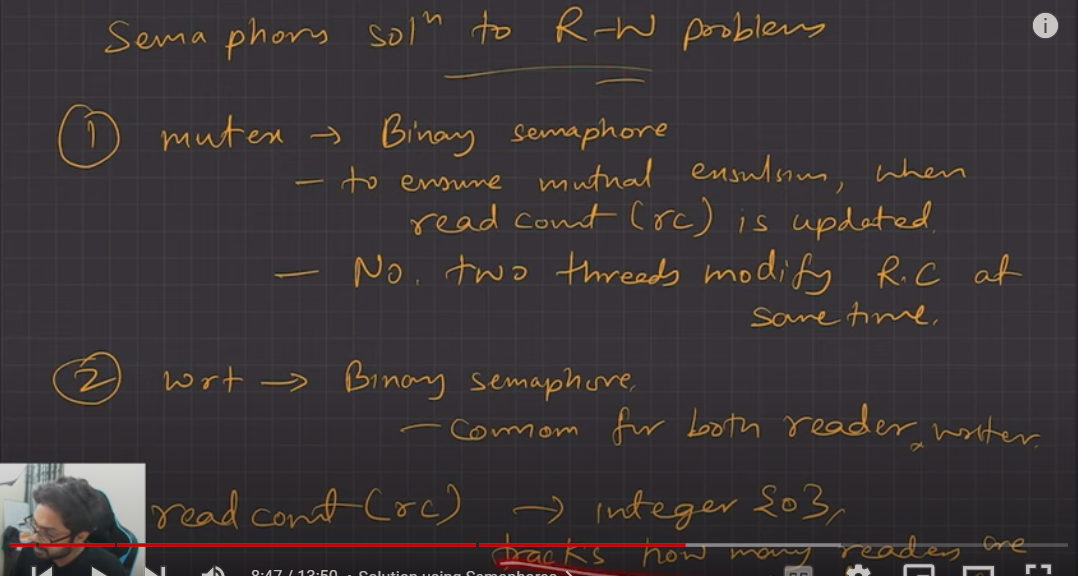 Semaphors solⁿ to R-W problems
① mutex → Binary semaphore
– to ensure mutual exculsion, when
read count (rc) is updated.
– No. two threads modify R.C at
same time.
② wrt → Binary semaphore.
– common for both reader, writer.
read count (rc) → integer {0},
tracks how many readers are
8:47 / 13:50 • Solution using Semaphores